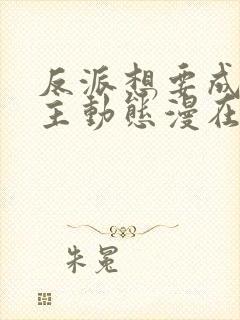 反派想要成
主動態漫在
朱冕